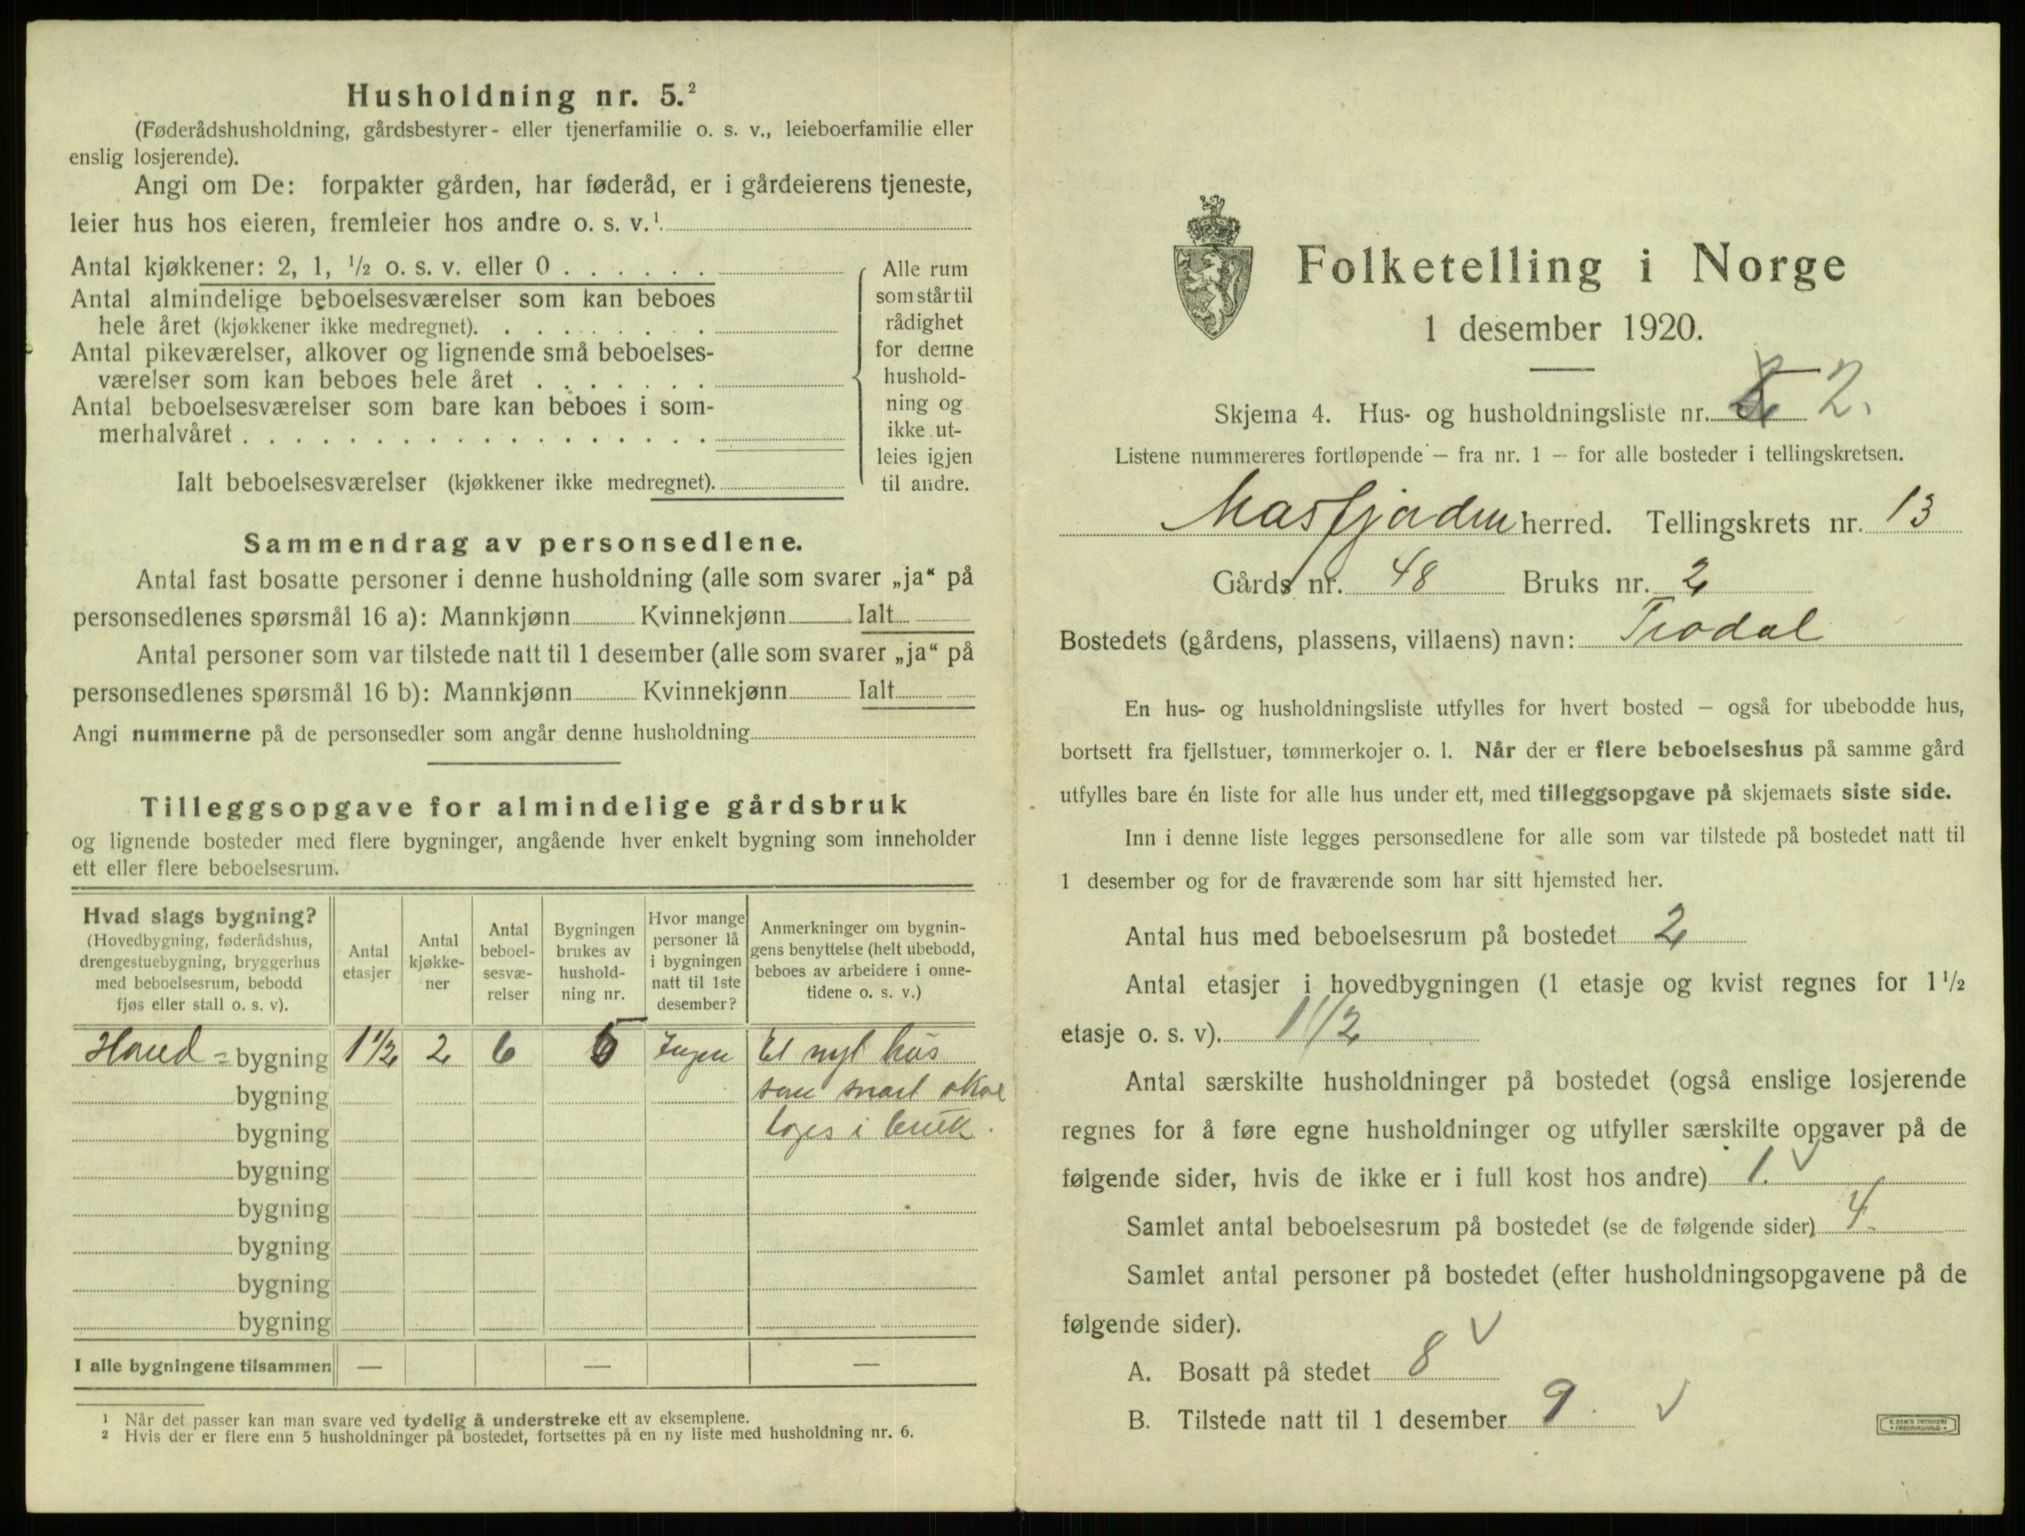 Husholdning nr. 5.²
(Føderådshusholdning, gårdsbestyrer- eller tjenerfamilie o. s. v., leieboerfamilie eller
enslig losjerende).
Angi om De: forpakter gården, har føderåd, er i gårdeierens tjeneste,
leier hus hos eieren, fremleier hos andre o. s. v.¹
Antal kjøkkener: 2, 1, ½ o. s. v. eller 0 . . . . . .
Antal almindelige beboelsesværelser som kan beboes
hele året (kjøkkener ikke medregnet). . . . . . . . .
Antal pikeværelser, alkover og lignende små beboelses-
værelser som kan beboes hele året . . . . . . .
Antal beboelsesværelser som bare kan beboes i som-
merhalvåret . . . . . . . . . . . . . . . . . .
Ialt beboelsesværelser (kjøkkener ikke medregnet).
Alle rum
som står til
rådighet
for denne
hushold-
ning og
ikke ut-
leies igjen
til andre.
Sammendrag av personsedlene.
Antal fast bosatte personer i denne husholdning (alle som svarer „ja“ på
personsedlenes spørsmål 16 a): Mannkjønn Kvinnekjønn Ialt
Antal personer som var tilstede natt til 1 desember (alle som svarer „ja“ på
personsedlenes spørsmål 16 b): Mannkjønn Kvinnekjønn Ialt
Angi nummerne på de personsedler som angår denne husholdning
Tilleggsopgave for almindelige gårdsbruk
og lignende bosteder med flere bygninger, angående hver enkelt bygning som inneholder
ett eller flere beboelsesrum.
Hvad slags bygning?
(Hovedbygning, føderådshus,
drengestuebygning, bryggerhus
med beboelsesrum, bebodd
fjøs eller stall o. s. v).
Antal
etasjer
Antal
kjøkke-
ner
Antal
beboel-
sesvæ-
relser
Bygningen
brukes av
hushold-
ning nr.
Hvor mange
personer lå
i bygningen
natt til 1ste
desember?
Anmerkninger om bygnin-
gens benyttelse (helt ubebodd,
beboes av arbeidere i onne-
tidene o. s. v.)
Hoved= bygning 1½ 2 6 5 Ingen Et nyt hus
bygning som snart skal
bygning tages i bruk.
bygning
bygning
bygning
bygning
bygning
I alle bygningene tilsammen — — —
¹ Når det passer kan man svare ved tydelig å understreke ett av eksemplene.
² Hvis der er flere enn 5 husholdninger på bostedet, fortsettes på en ny liste med husholdning nr. 6.
Folketelling i Norge
1 desember 1920.
Skjema 4. Hus- og husholdningsliste nr. 2.
Listene nummereres fortløpende — fra nr. 1 — for alle bosteder i tellingskretsen.
Masfjorden herred. Tellingskrets nr. 13
Gårds nr. 48 Bruks nr. 2
Bostedets (gårdens, plassens, villaens) navn: Trodal
En hus- og husholdningsliste utfylles for hvert bosted — også for ubebodde hus,
bortsett fra fjellstuer, tømmerkojer o. l. Når der er flere beboelseshus på samme gård
utfylles bare én liste for alle hus under ett, med tilleggsopgave på skjemaets siste side.
Inn i denne liste legges personsedlene for alle som var tilstede på bostedet natt til
1 desember og for de fraværende som har sitt hjemsted her.
Antal hus med beboelsesrum på bostedet 2
Antal etasjer i hovedbygningen (1 etasje og kvist regnes for 1½
etasje o. s. v). 1½
Antal særskilte husholdninger på bostedet (også enslige losjerende
regnes for å føre egne husholdninger og utfyller særskilte opgaver på de
følgende sider, hvis de ikke er i full kost hos andre) 1. ✓
Samlet antal beboelsesrum på bostedet (se de følgende sider) 4.
Samlet antal personer på bostedet (efter husholdningsopgavene på de
følgende sider).
A. Bosatt på stedet 8 ✓
B. Tilstede natt til 1 desember 9. ✓